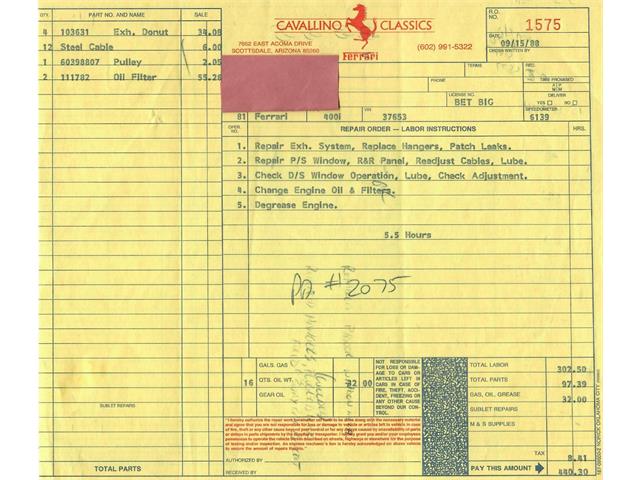 QTY. PART NO. AND NAME SALE
4 103631 Exh. Donut 34.08
12 Steel Cable 6.00
1 60398807 Pulley 2.05
2 111782 Oil Filter 55.26
SUBLET REPAIRS
TOTAL PARTS
CAVALLINO CLASSICS
7652 EAST ACOMA DRIVE
SCOTTSDALE, ARIZONA 85260
(602) 991-5322
Ferrari
R.O. NO. 1575
DATE 09/15/88
ORDER WRITTEN BY
TERMS
PHONE
TIME PROMISED
A.M.
P.M.
LICENSE NO. BET BIG
DELIVER YES NO
VIN SPEEDOMETER
81 Ferrari 400i 37653 6139
OPER. NO. REPAIR ORDER — LABOR INSTRUCTIONS HRS.
1. Repair Exh. System, Replace Hangers, Patch Leaks.
2. Repair P/S Window, R&R Panel, Readjust Cables, Lube.
3. Check D/S Window Operation, Lube, Check Adjustment.
4. Change Engine Oil & Filters.
5. Degrease Engine.
5.5 Hours
PD #2075
GALS. GAS
16 QTS. OIL WT. 32 00
GEAR OIL
NOT RESPONSIBLE
FOR LOSS OR DAM-
AGE TO CARS OR
ARTICLES LEFT IN
CARS IN CASE OF
FIRE, THEFT, ACCI-
DENT, FREEZING OR
ANY OTHER CAUSE
BEYOND OUR CON-
TROL.
TOTAL LABOR 302.50
TOTAL PARTS 97.39
GAS, OIL, GREASE 32.00
SUBLET REPAIRS
M & S SUPPLIES
TAX 8.41
PAY THIS AMOUNT 440.30
AUTHORIZED BY
RECEIVED BY